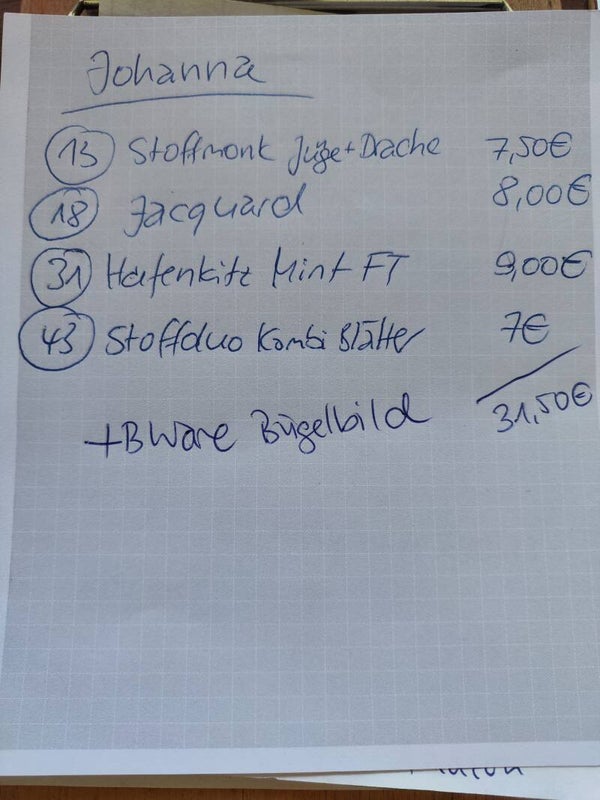 Johanna
13 Stoffmonk Juge+Drache 7,50€
18 Jacquard 8,00€
31 Hafenkitz Mint FT 9,00€
43 Stoffduo Kombi Blätter 7€
+BWare Bügelbild 31,50€